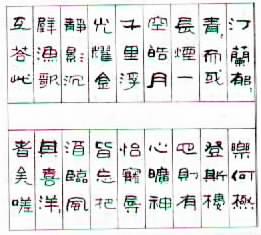 汀蘭郁々
青々而或
長煙一
空皓月
千里浮
光耀金
靜影沉
璧漁歌
互荅此
樂何極
登斯樓
也則有
心曠神
怡寵辱
皆忘把
酒臨風
其喜洋々
者矣嗟